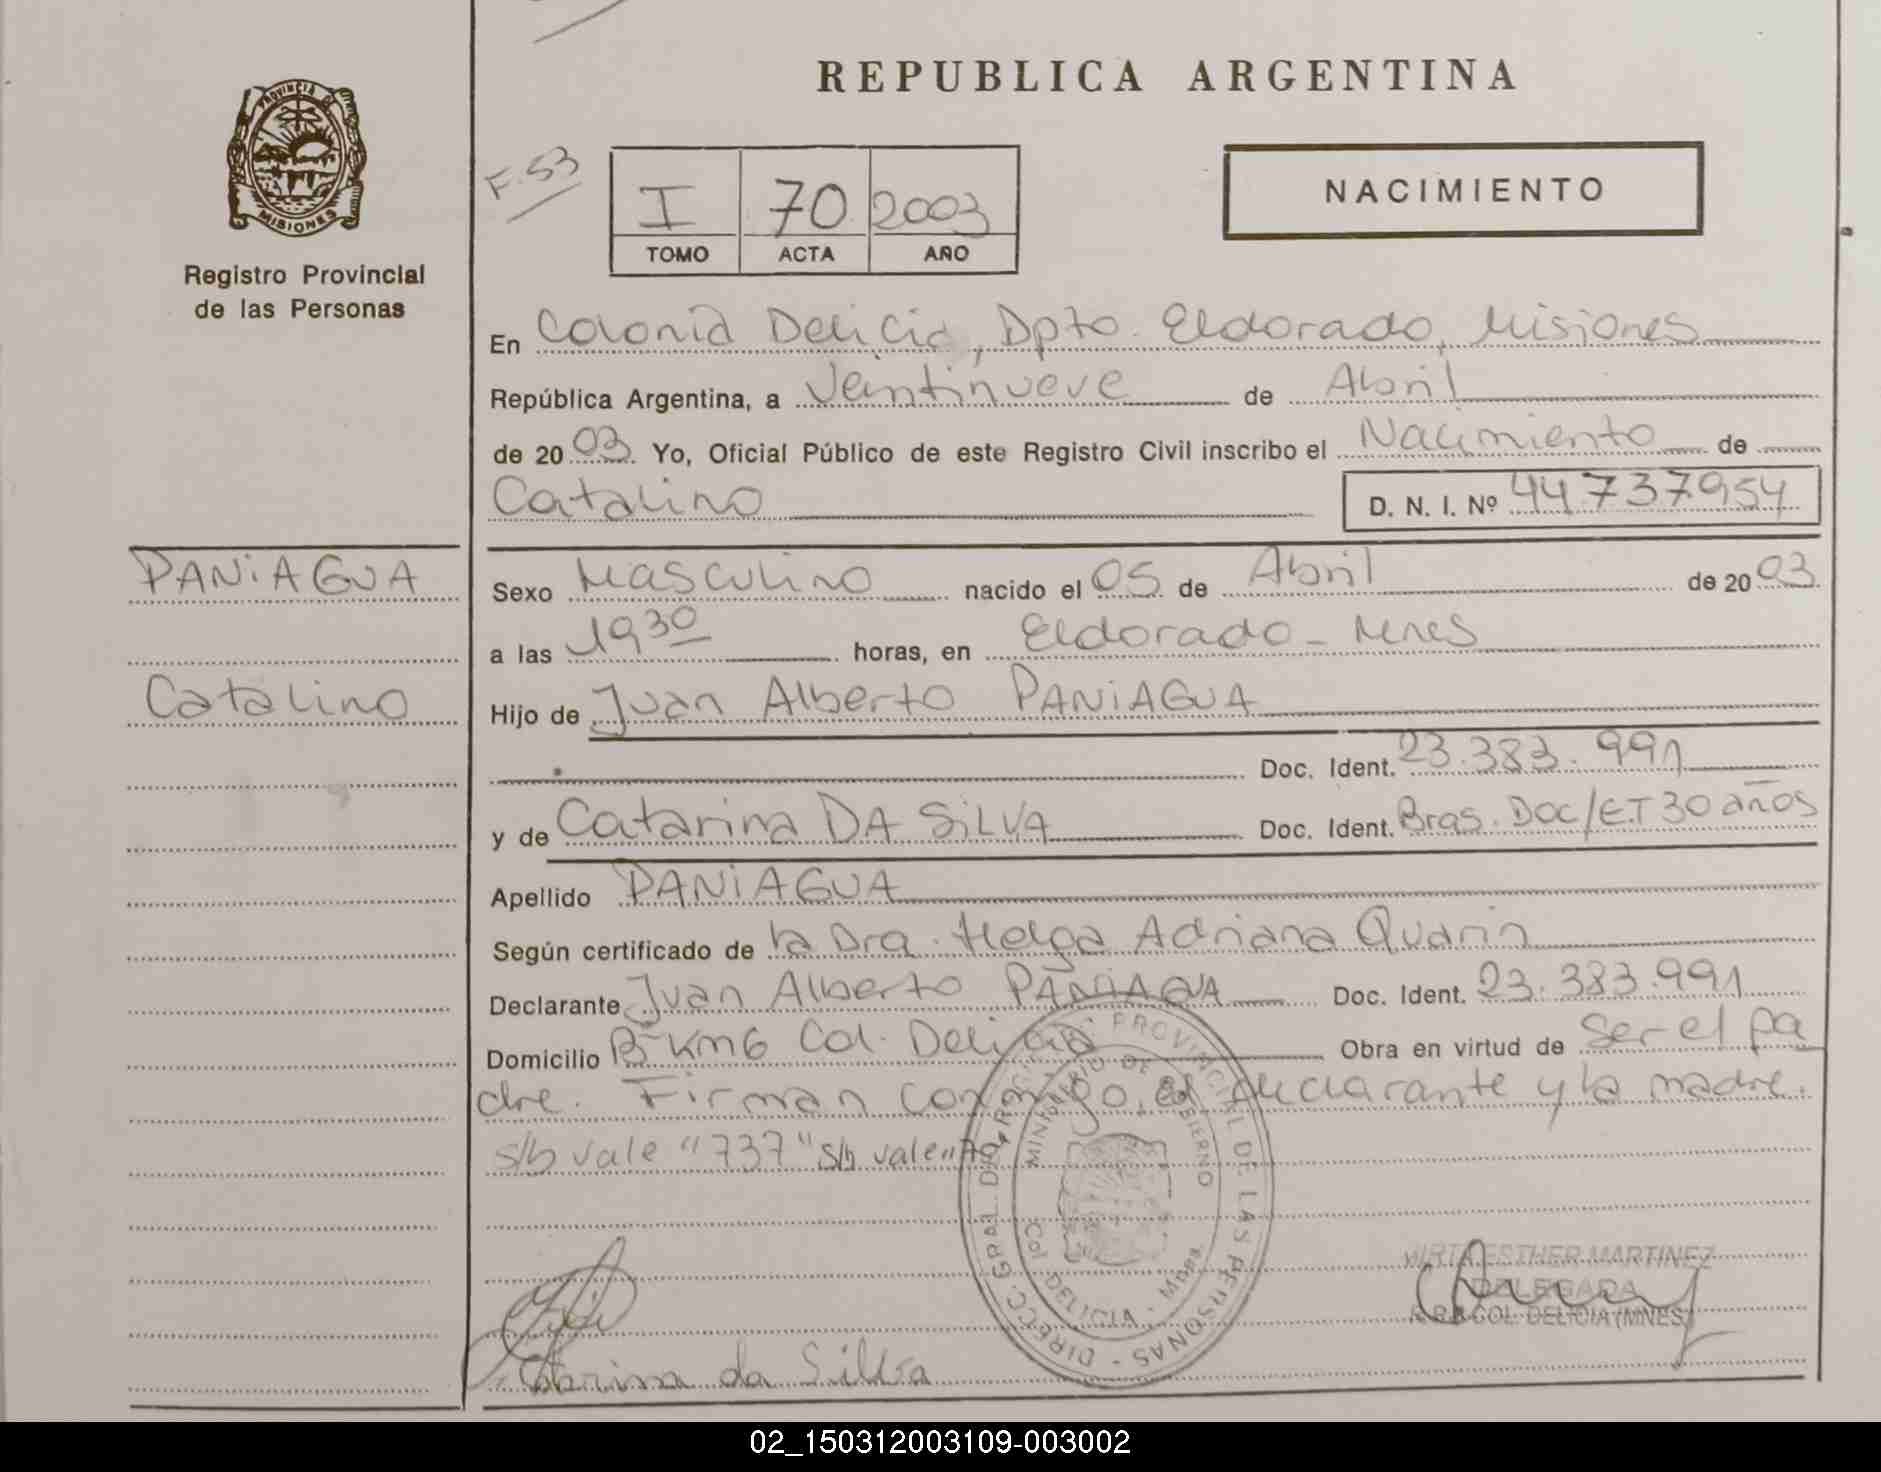 REPUBLICA ARGENTINA
PROVINCIA DE
MISIONES
Registro Provincial
de las Personas
F. 53
I 70 2003
TOMO ACTA AÑO
NACIMIENTO
En Colonia Delicia, Dpto. Eldorado, Misiones
República Argentina, a Veintinueve de Abril
de 2003 Yo, Oficial Público de este Registro Civil inscribo el Nacimiento de
Catalino D. N. I. Nº 44.737.954
PANiAGUA
Catalino
Sexo Masculino nacido el 05 de Abril de 2003
a las 19 30 horas, en Eldorado - Mnes
Hijo de Juan Alberto PANiAGUA
Doc. Ident. 23.383.991
y de Catarina DA SiLVA Doc. Ident. Bras. Doc/E.T 30 años
Apellido PANiAGUA
Según certificado de la Dra. Helga Adriana Quarin
Declarante Juan Alberto PANiAGUA Doc. Ident. 23.383.991
Domicilio Bº Km 6 Col. Delicia Obra en virtud de Ser el pa
dre. Firman conmigo, el declarante y la madre.
s/b vale "737" s/b vale "70
DIRECC. GRAL. DEL REG. PROVINCIAL DE LAS PERSONAS
MINISTERIO DE GOBIERNO
COL. DELICIA - Mnes.
MIRTA ESTHER MARTINEZ
DELEGADA
COL. DELICIA (MNES)
Catarina da Silva
02_150312003109-003002